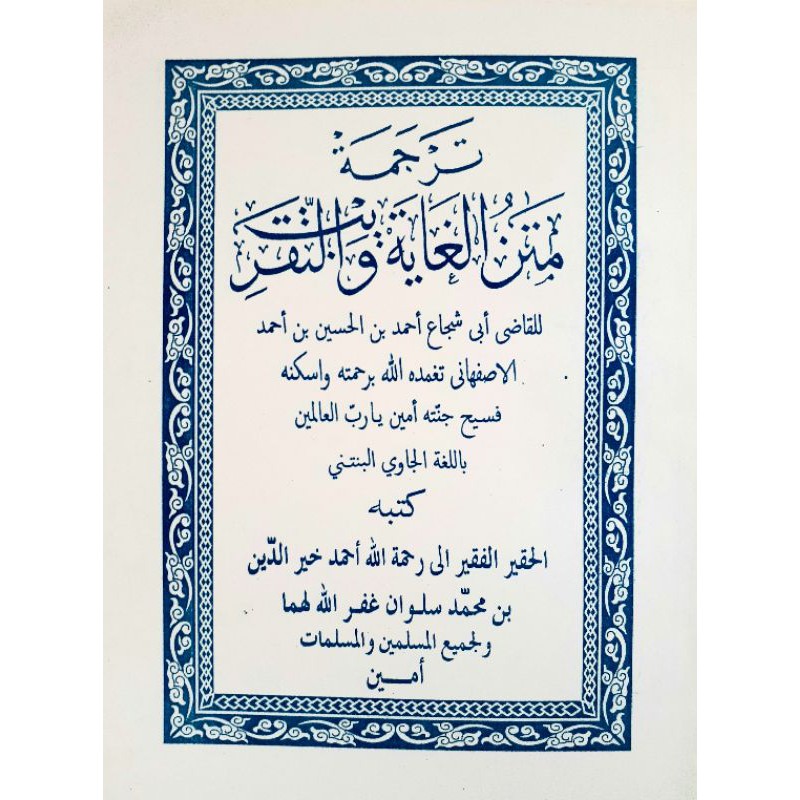 ترجمة
متن الغاية والتقريب
للقاضى أبى شجاع أحمد بن الحسين بن أحمد
الاصفهانى تغمده الله برحمته واسكنه
فسيح جنّته أمين ياربّ العالمين
باللغة الجاوي البنتني
كتبه
الحقير الفقير الى رحمة الله أحمد خير الدّين
بن محمّد سلوان غفر الله لهما
ولجميع المسلمين والمسلمات
أمــين